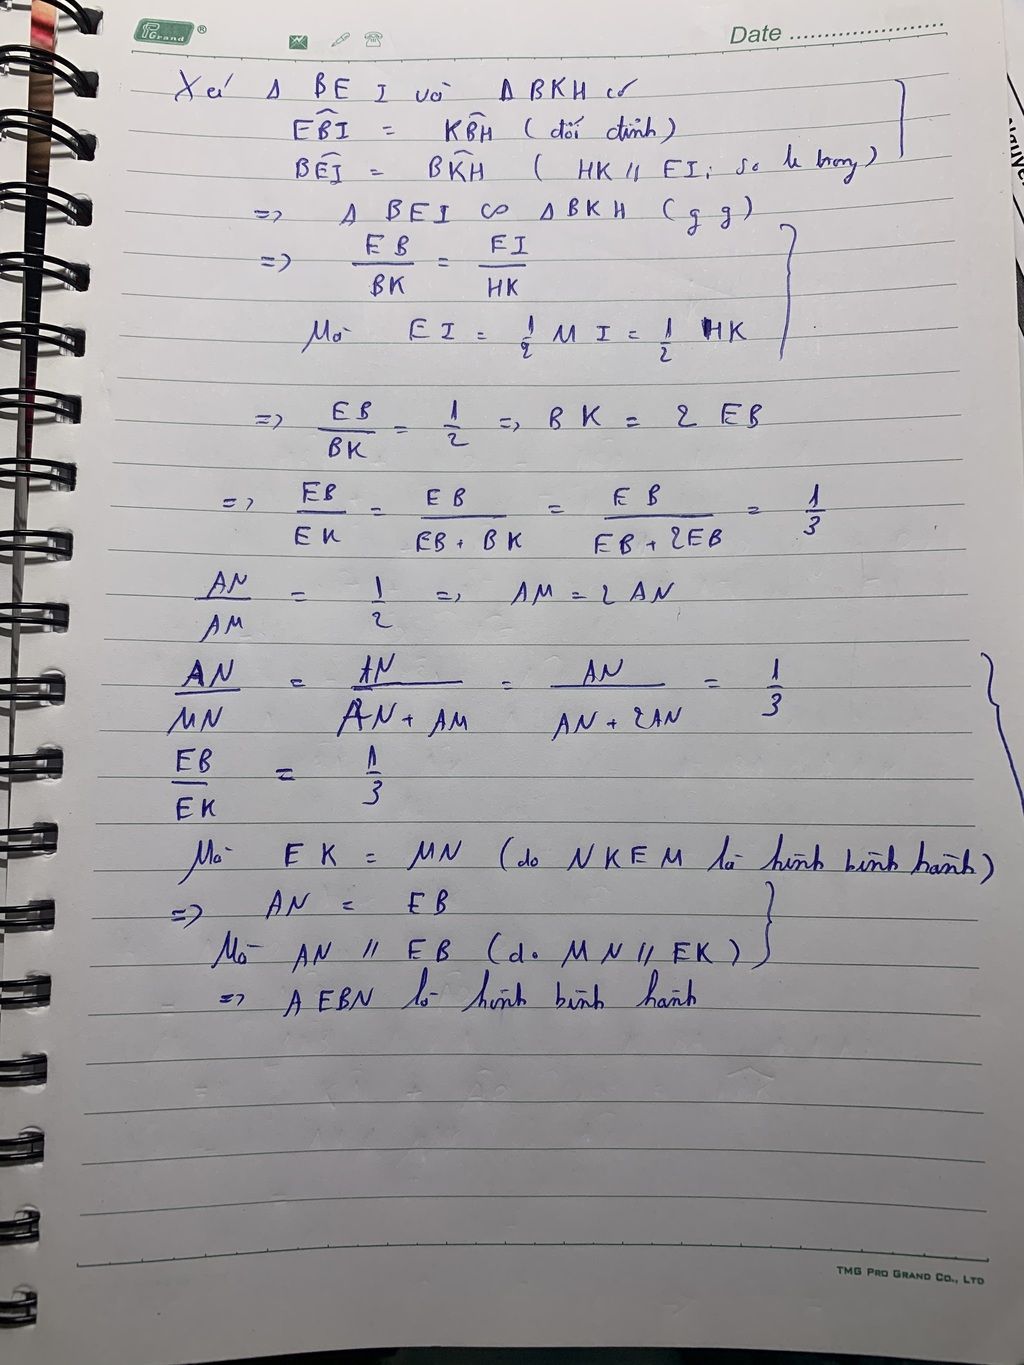 PGrand ®
Date ........................
Xét Δ BEI và Δ BKH có
EB̂I = KB̂H (đối đỉnh)
BÊI = BK̂H ( HK // EI; so le trong)
=> Δ BEI ∽ Δ BKH (g g)
=> EB/BK = EI/HK
Mà EI = 1/2 MI = 1/2 HK
=> EB/BK = 1/2 => BK = 2 EB
=> EB/EK = EB/EB + BK = EB/EB + 2EB = 1/3
AN/AM = 1/2 => AM = 2 AN
AN/MN = AN/AN + AM = AN/AN + 2AN = 1/3
EB/EK = 1/3
Mà EK = MN (do NKEM là hình bình hành)
=> AN = EB
Mà AN // EB (do MN // EK)
=> AEBN là hình bình hành
TMG PRO GRAND CO., LTD